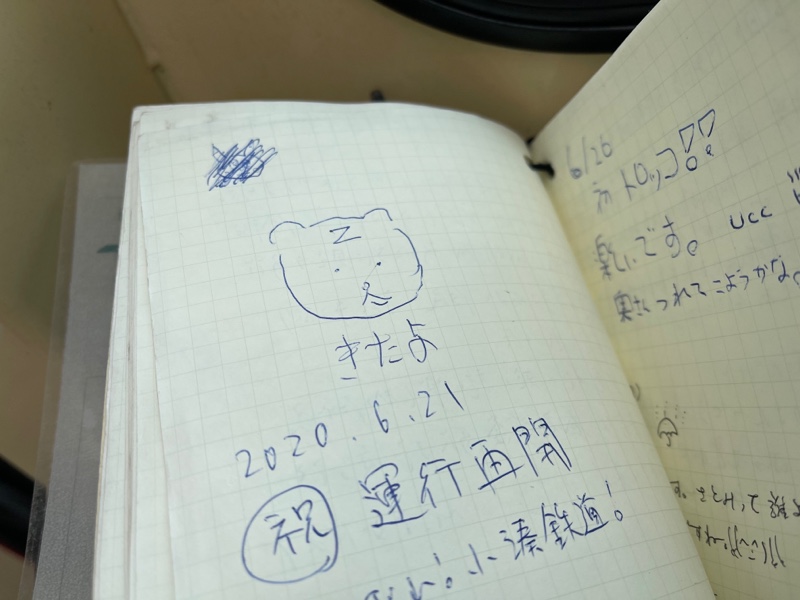 Z
きたよ
2020.6.21
祝 運行再開
小湊鉄道!
6/26
初トロッコ!!
楽しいです。 UCC
奥さんつれてこようかな。